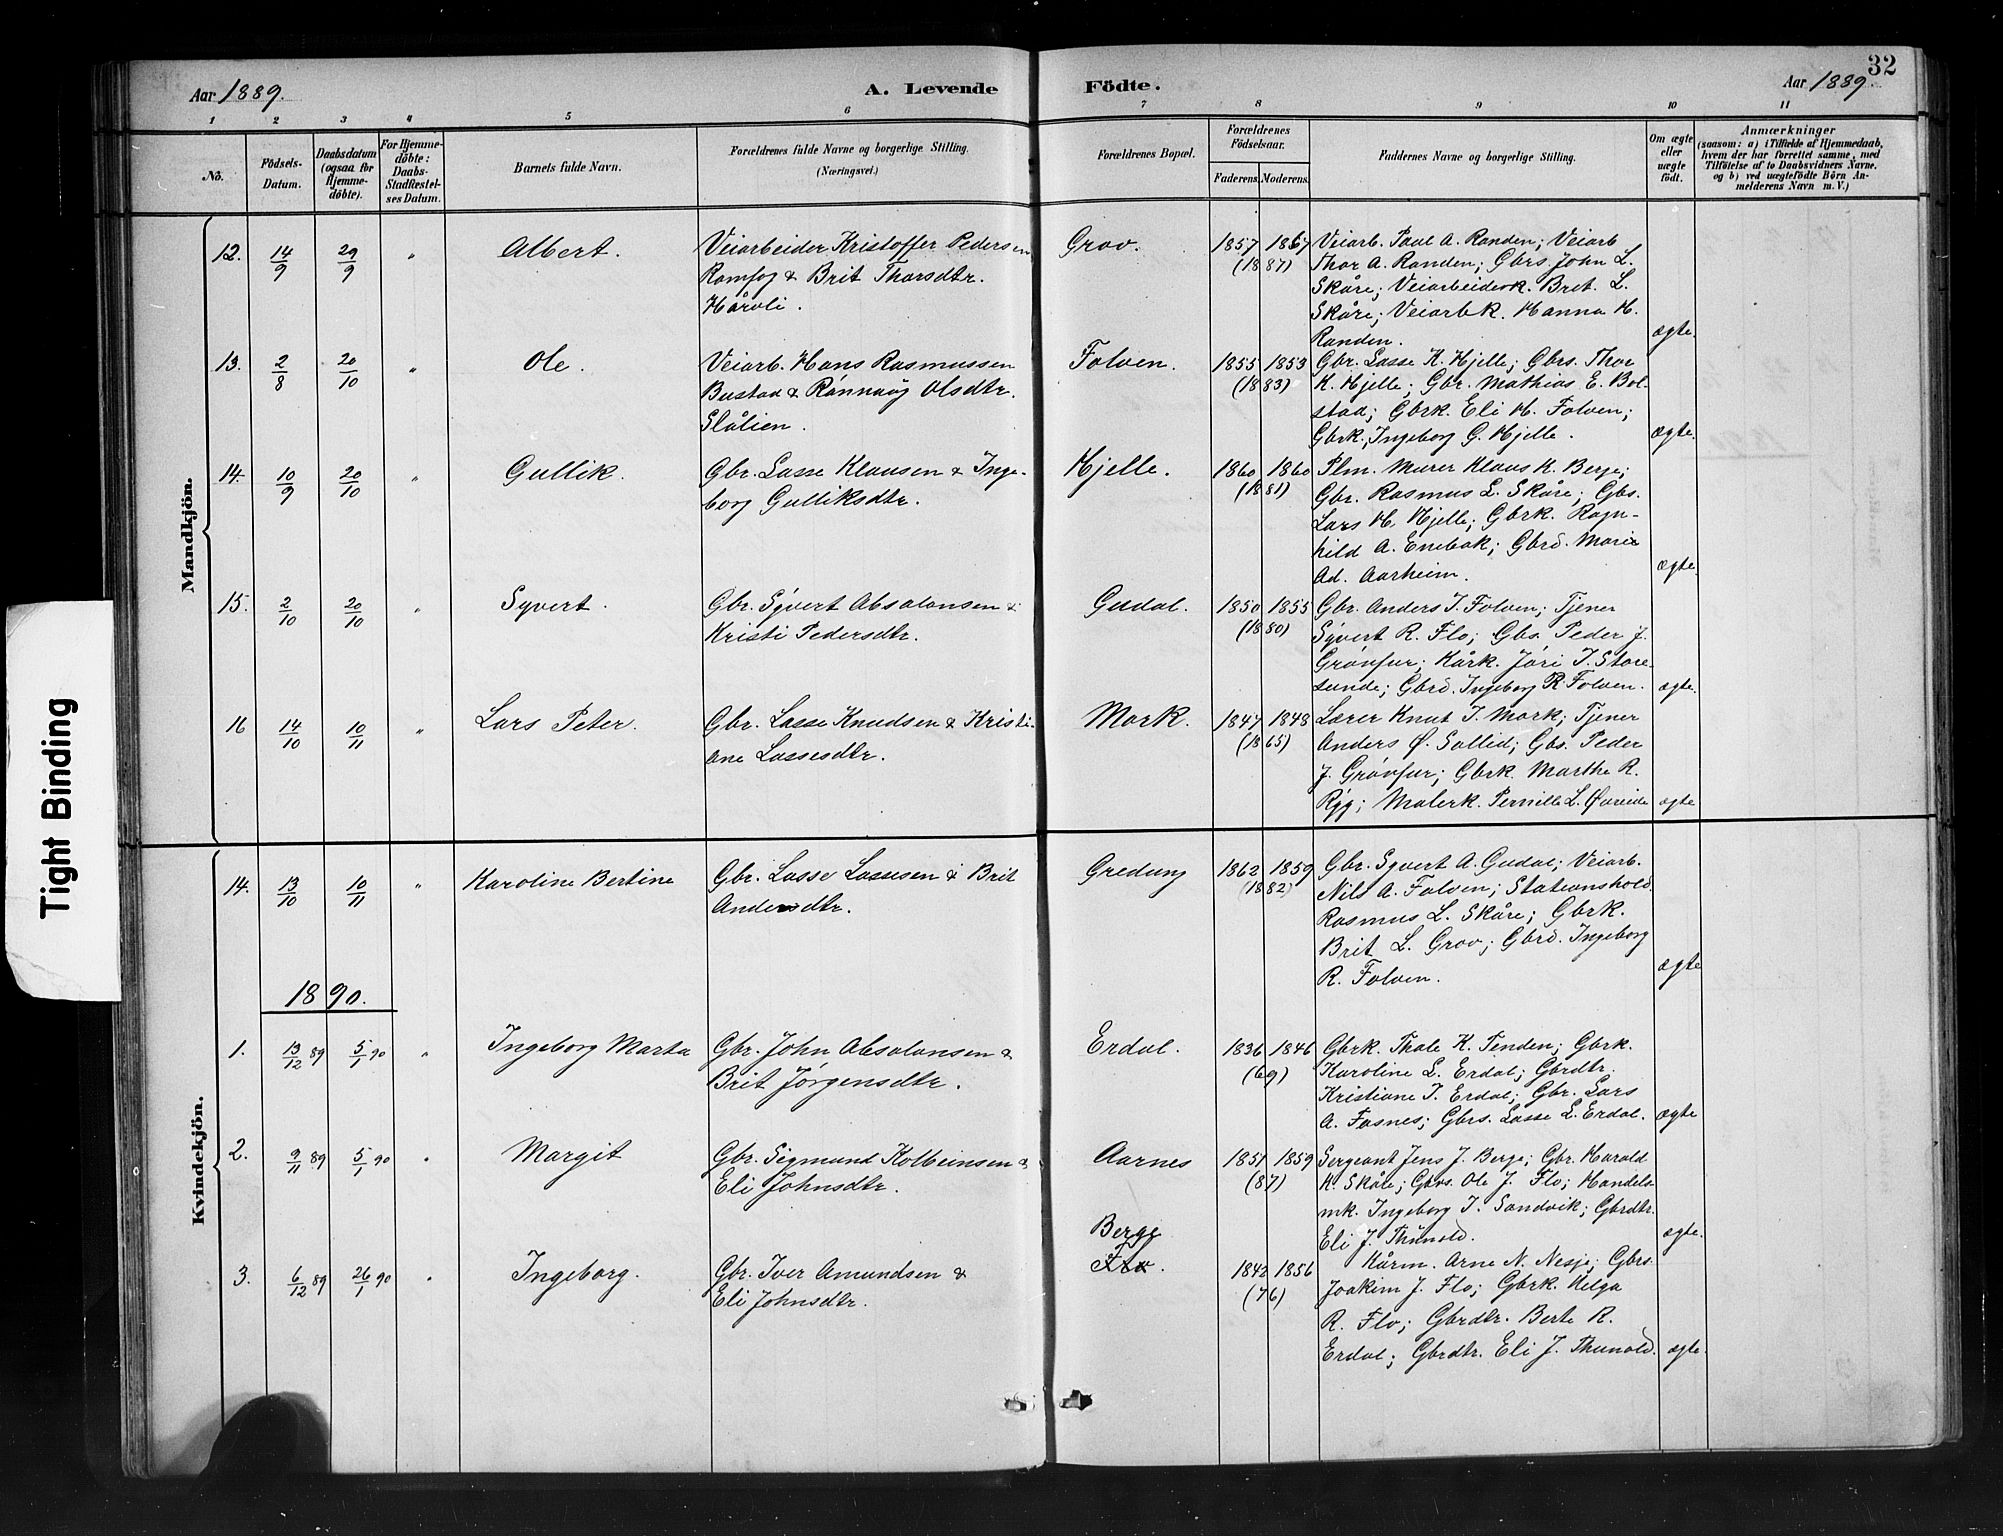 32
Aar 1889.
A. Levende
Födte.
Aar 1889.
1 2 3 4 5 6 7 8 9 10 11
No.
Födsels-
Datum.
Daabsdatum
(ogsaa for
Hjemme-
døbte).
For Hjemme-
døbte:
Daabs-
Stadfæstel-
ses Datum.
Barnets fulde Navn.
Forældrenes fulde Navne og borgerlige Stilling.
(Næringsvei.)
Forældrenes Bopæl.
Forældrenes
Födselsaar.
Faderens. Moderens.
Faddernes Navne og borgerlige Stilling.
Om ægte
eller
uægte
födt.
Anmærkninger
(saasom: a) i Tilfælde af Hjemmedaab,
hvem der har forrettet samme, med
Tilföielse af to Daabsvidners Navne.
og b) ved uægtefödte Börn An-
melderens Navn m. V.)
Mandkjön.
12. 14/9 29/9 " Albert.
Veiarbeider Kristoffer Pedersen
Ramfog & Brit Thorsdtr.
Håroli.
Grov.
1857 1867
(1887)
Veiarb. Paul A. Randen; Veiarb
Thor A. Randen; Gbrs. John L.
Skåre; Veiarbeiderk. Brit. L.
Skåre; Veiarbk. Hanna H.
Randen.
ægte.
13. 2/8 20/10 " Ole.
Veiarb. Hans Rasmussen
Bustad & Rønnaug Olsdtr.
Slålien.
Folven.
1855 1853
(1883)
Gbr. Lasse K. Hjelle; Gbrs. Thor
K. Hjelle; Gbr. Mathias E. Bol-
stad; Gbrk. Eli H. Folven;
Gbrk. Ingeborg G. Hjelle.
ægte.
14. 10/9 20/10 " Gullik.
Gbr. Lasse Klausen & Inge-
borg Gulliksdtr.
Hjelle.
1860 1860
(1881)
Plm. Murer Klaus K. Berge;
Gbr. Rasmus L. Skåre; Gbs.
Lars H. Hjelle; Gbrk. Ragn-
hild A. Enebak; Gbrd. Marie
Ad. Aarheim.
ægte.
15. 2/10 20/10 " Syvert.
Gbr. Syvert Absalonsen &
Kristi Pedersdtr.
Gudal.
1850 1855
(1880)
Gbr. Anders I. Folven; Tjener
Syvert R. Flo; Gbs. Peder J.
Grønfur; Kårk. Jóri I. Store-
sunde; Gbrd. Ingeborg R. Folven.
ægte.
16 14/10 10/11 " Lars Peter.
Gbr. Lasse Knudsen & Kristi-
ane Lassesdtr.
Mork.
1847 1848
(1865)
Lærer Knut I. Mork; Tjener
Anders Ø. Sollid; Gbs. Peder
J. Grønfur; Gbrk. Marthe R.
Ryg; Malerk. Pernille L. Øvreide
ægte
Kvindekjön.
14. 13/10 10/11 " Karoline Bertine
Gbr. Lasse Lassesen & Brit
Andersdtr.
Gredung
1862 1859
(1882)
Gbr. Syvert A. Gudal; Veiarb.
Nils A. Folven; Stationshold.
Rasmus L. Skåre; Gbrk.
Brit L. Grov; Gbrd. Ingeborg
R. Folven.
ægte
1890.
1. 13/12 89 5/1 90 " Ingeborg Marta
Gbr. John Absalonsen &
Brit Jørgensdtr.
Erdal.
1836 1846
(69)
Gbrk. Thale K. Tenden; Gbrk.
Karoline L. Erdal; Gbrdtr.
Kristiane I. Erdal; Gbr. Lars
A. Fosnes; Gbrs. Lasse L. Erdal.
ægte
2. 9/11 89 5/1 90 " Margit
Gbr. Sigmund Kolbeinsen &
Eli Johnsdtr.
Aarnes
1851 1859
(87)
Sergeant Jens J. Berge; Gbr. Harald
K. Skåle; Gbrs. Ole J. Flo; Handels-
mk. Ingeborg I. Sandvik; Gbrdtr.
Eli J. Thunold.
ægte.
3. 6/12 89 26/1 90 " Ingeborg.
Gbr. Iver Amundsen &
Eli Johnsdtr.
Berge
Flo.
1842 1856
(76)
Kårm. Arne N. Nesje; Gbrs.
Joakim J. Flo; Gbrk. Helga
R. Flo; Gbrdtr. Berte R.
Erdal; Gbrdtr. Eli J. Thunold.
ægte.
Tight Binding